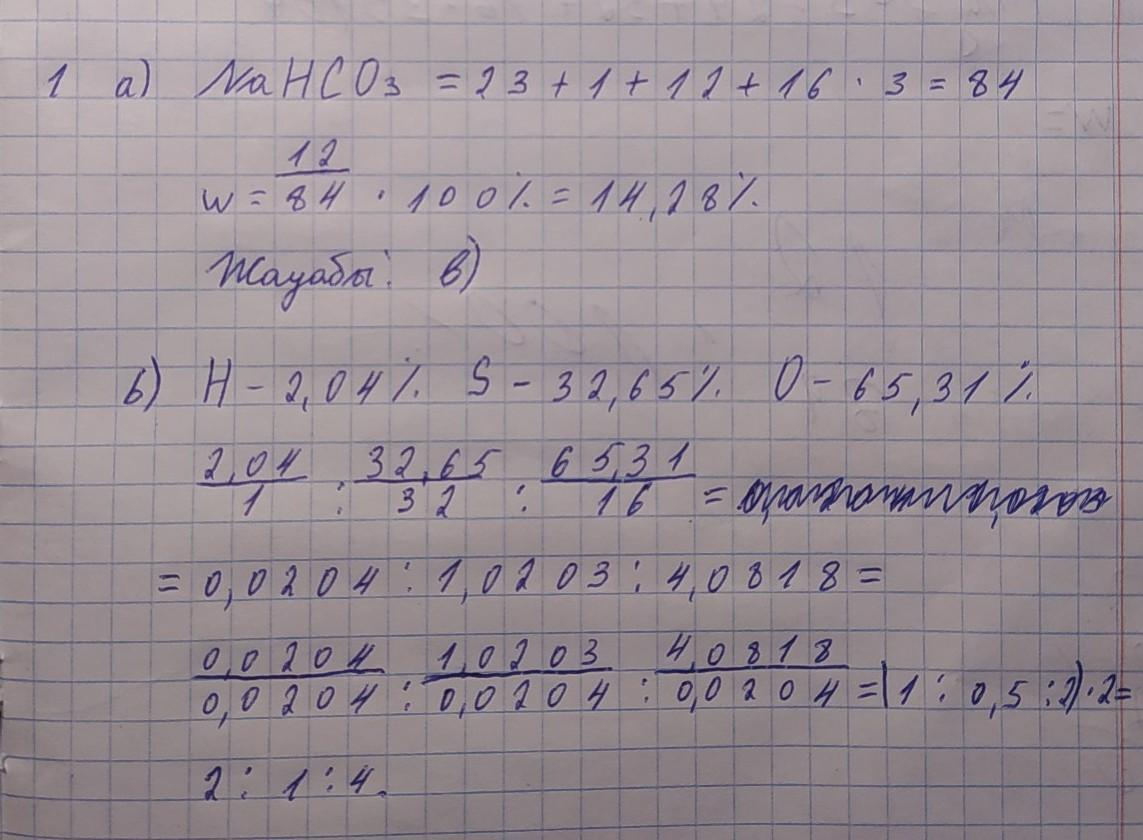 1 а) NaHCO3 = 23 + 1 + 12 + 16 · 3 = 84
w = 12/84 · 100% = 14,28%.
Жауабы: в)
b) H - 2,04% S - 32,65% O - 65,31%
2,04/1 : 32,65/32 : 65,31/16 =
= 0,0204 : 1,0203 : 4,0818 =
0,0204/0,0204 : 1,0203/0,0204 : 4,0818/0,0204 = (1 : 0,5 : 2) · 2 =
2 : 1 : 4.